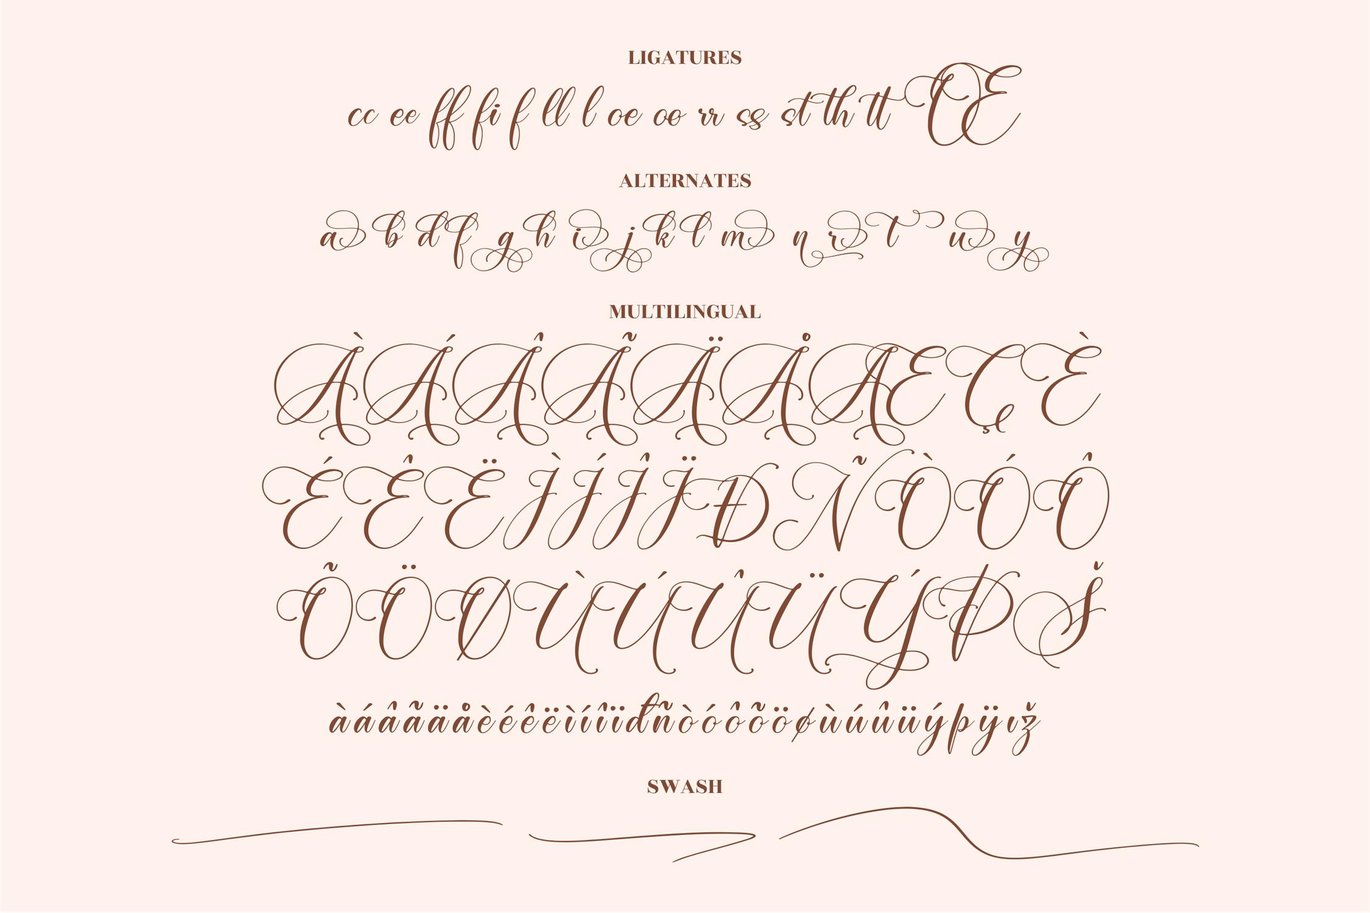 LIGATURES
cc ee ff fi f ll l oe oo rr ss st th tt Œ
ALTERNATES
a b d f g h i j k l m n r t u y
MULTILINGUAL
À Á Â Ã Ä Å Æ Ç È
É Ê Ë Ì Í Î Ï Ð Ñ Ò Ó Ô
Õ Ö Ø Ù Ú Û Ü Ý Þ Š
àáâãäåèéêëìíîïđñòóôõöøùúûüýþÿıž
SWASH